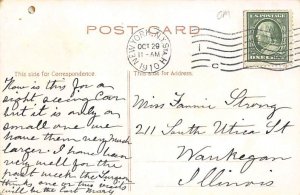 POST CARD
NEW YORK, N.Y. STA. H
OCT 29
11-AM
1910
This side for Correspondence.
This side for Address.
How is this for a
sight seeing Car
but it is only a
small one we
have them very much
larger. I have been
very well for the
past week the Surgeon
thinks one or two weeks
will be the last
Miss Fannie Strong
211 South Utica St
Waukegan
Illinois